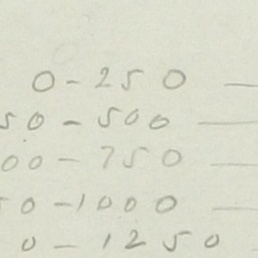 0-250 —
50-500 —
00-750 —
50-1000 —
0-1250